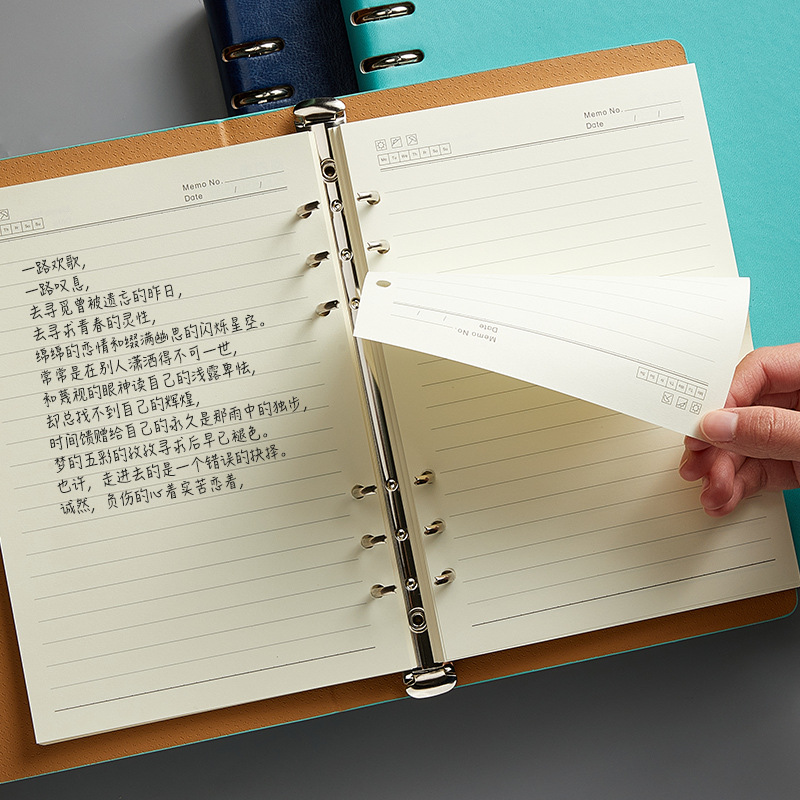 Memo No.
Date / /
Th Fr Sa Su
一路欢歌，
一路叹息，
去寻觅曾被遗忘的昨日，
去寻求青春的灵性，
绵绵的恋情和缀满幽思的闪烁星空。
常常是在别人潇洒得不可一世，
和蔑视的眼神读自己的浅露卑怯，
却总找不到自己的辉煌，
时间馈赠给自己的永久是那雨中的独步，
梦的五彩的孜孜寻求后早已褪色。
也许，走进去的是一个错误的抉择。
诚然，负伤的心着实苦恋着，
Memo No.
Date / /
Mo Tu We Th Fr Sa Su
Memo No.
Date / /
Mo Tu We Th Fr Sa Su